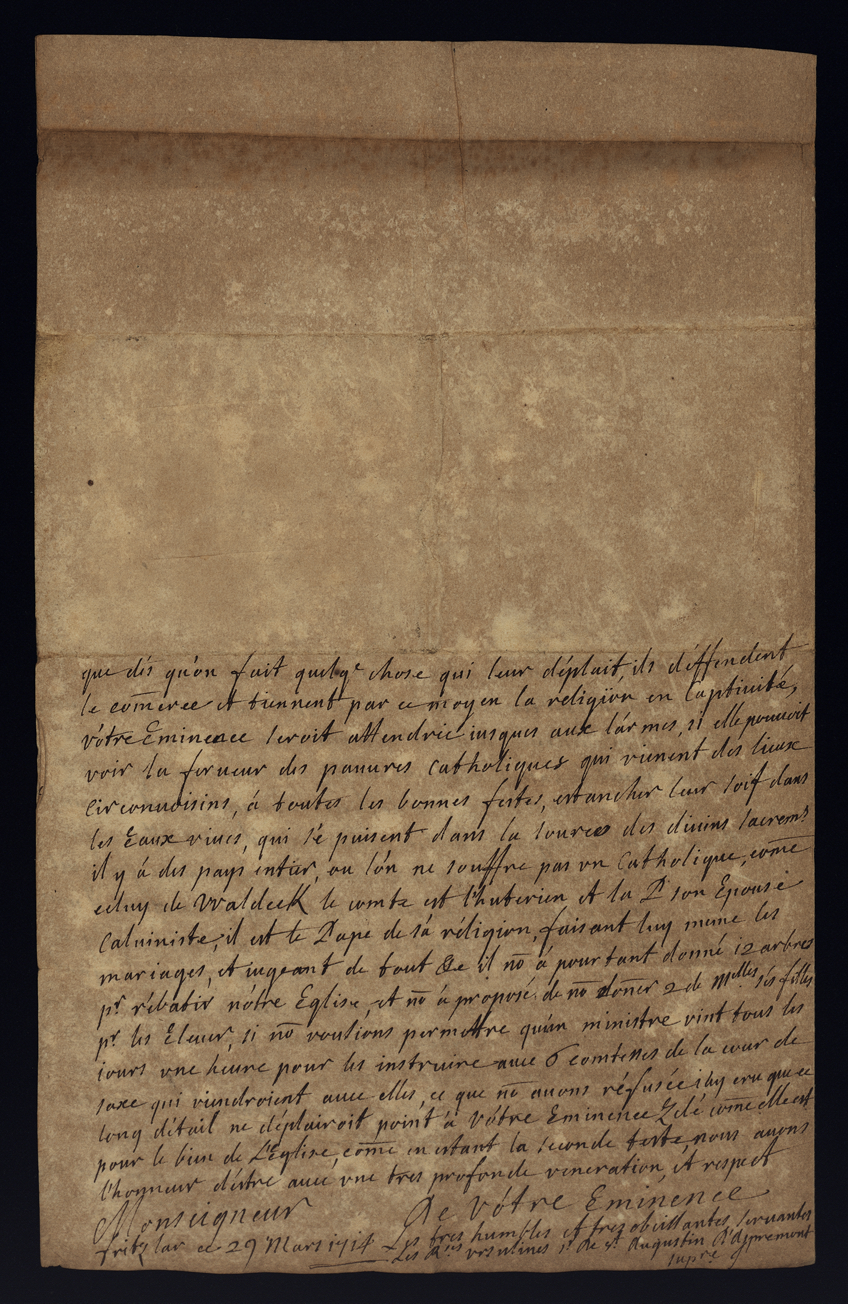 que dés qu'on fait quelqe chose qui leur déplait, ils déffendent
le com̄erce et tiennent par ce moyen la religion en Captiuité,
vôtre Eminence seroit attendrie iusques aux lármes, si elle pouuoit
voir la ferueur des pauures Catholiques qui vienent des lieux
Circonuoisins, á toutes les bonnes festes, estancher leur soif dans
les Eaux viues, qui sé puisent dans la source des diuins sacremts
il y á des pays entier, ou lón ne souffre pas vn Catholique, com̄e
celuy de Waldeck le comte est lhuterien et la Pe son Epouse
Caluiniste, il est le Pape de sá réligion, faisant luy meme les
mariages, et iugeant de tout il no᷃ á pour tant donné 12 arbres
pr rébatir nótre Eglise, et no᷃ á proposé, de no᷃ doner 2 de Melles sés filles
pr les Eleuer, si no᷃ voulions permettre qu'un ministre vint tous les
iours vne heure pour les instruire auec 6 comtesses de la cour de
saxe qui viendroient auec elles, ce que no᷃ auons réfusée i'ay cru que ce
long détail ne déplairoit point á vótre Eminence Zélé com̄e elle est
pour le bien de L'Eglise, com̄e en estant la séconde teste, nous auons
l'honneur d'éstre auec vne tres profonde veneration, et respect
Monseigneur De vótre Eminence
fritzlar ce 29 Mars 1714 Les tres humbles et tres obeissantes seruantes
Les Rses vrsulines sr de st Augustin D'Appremont
supre